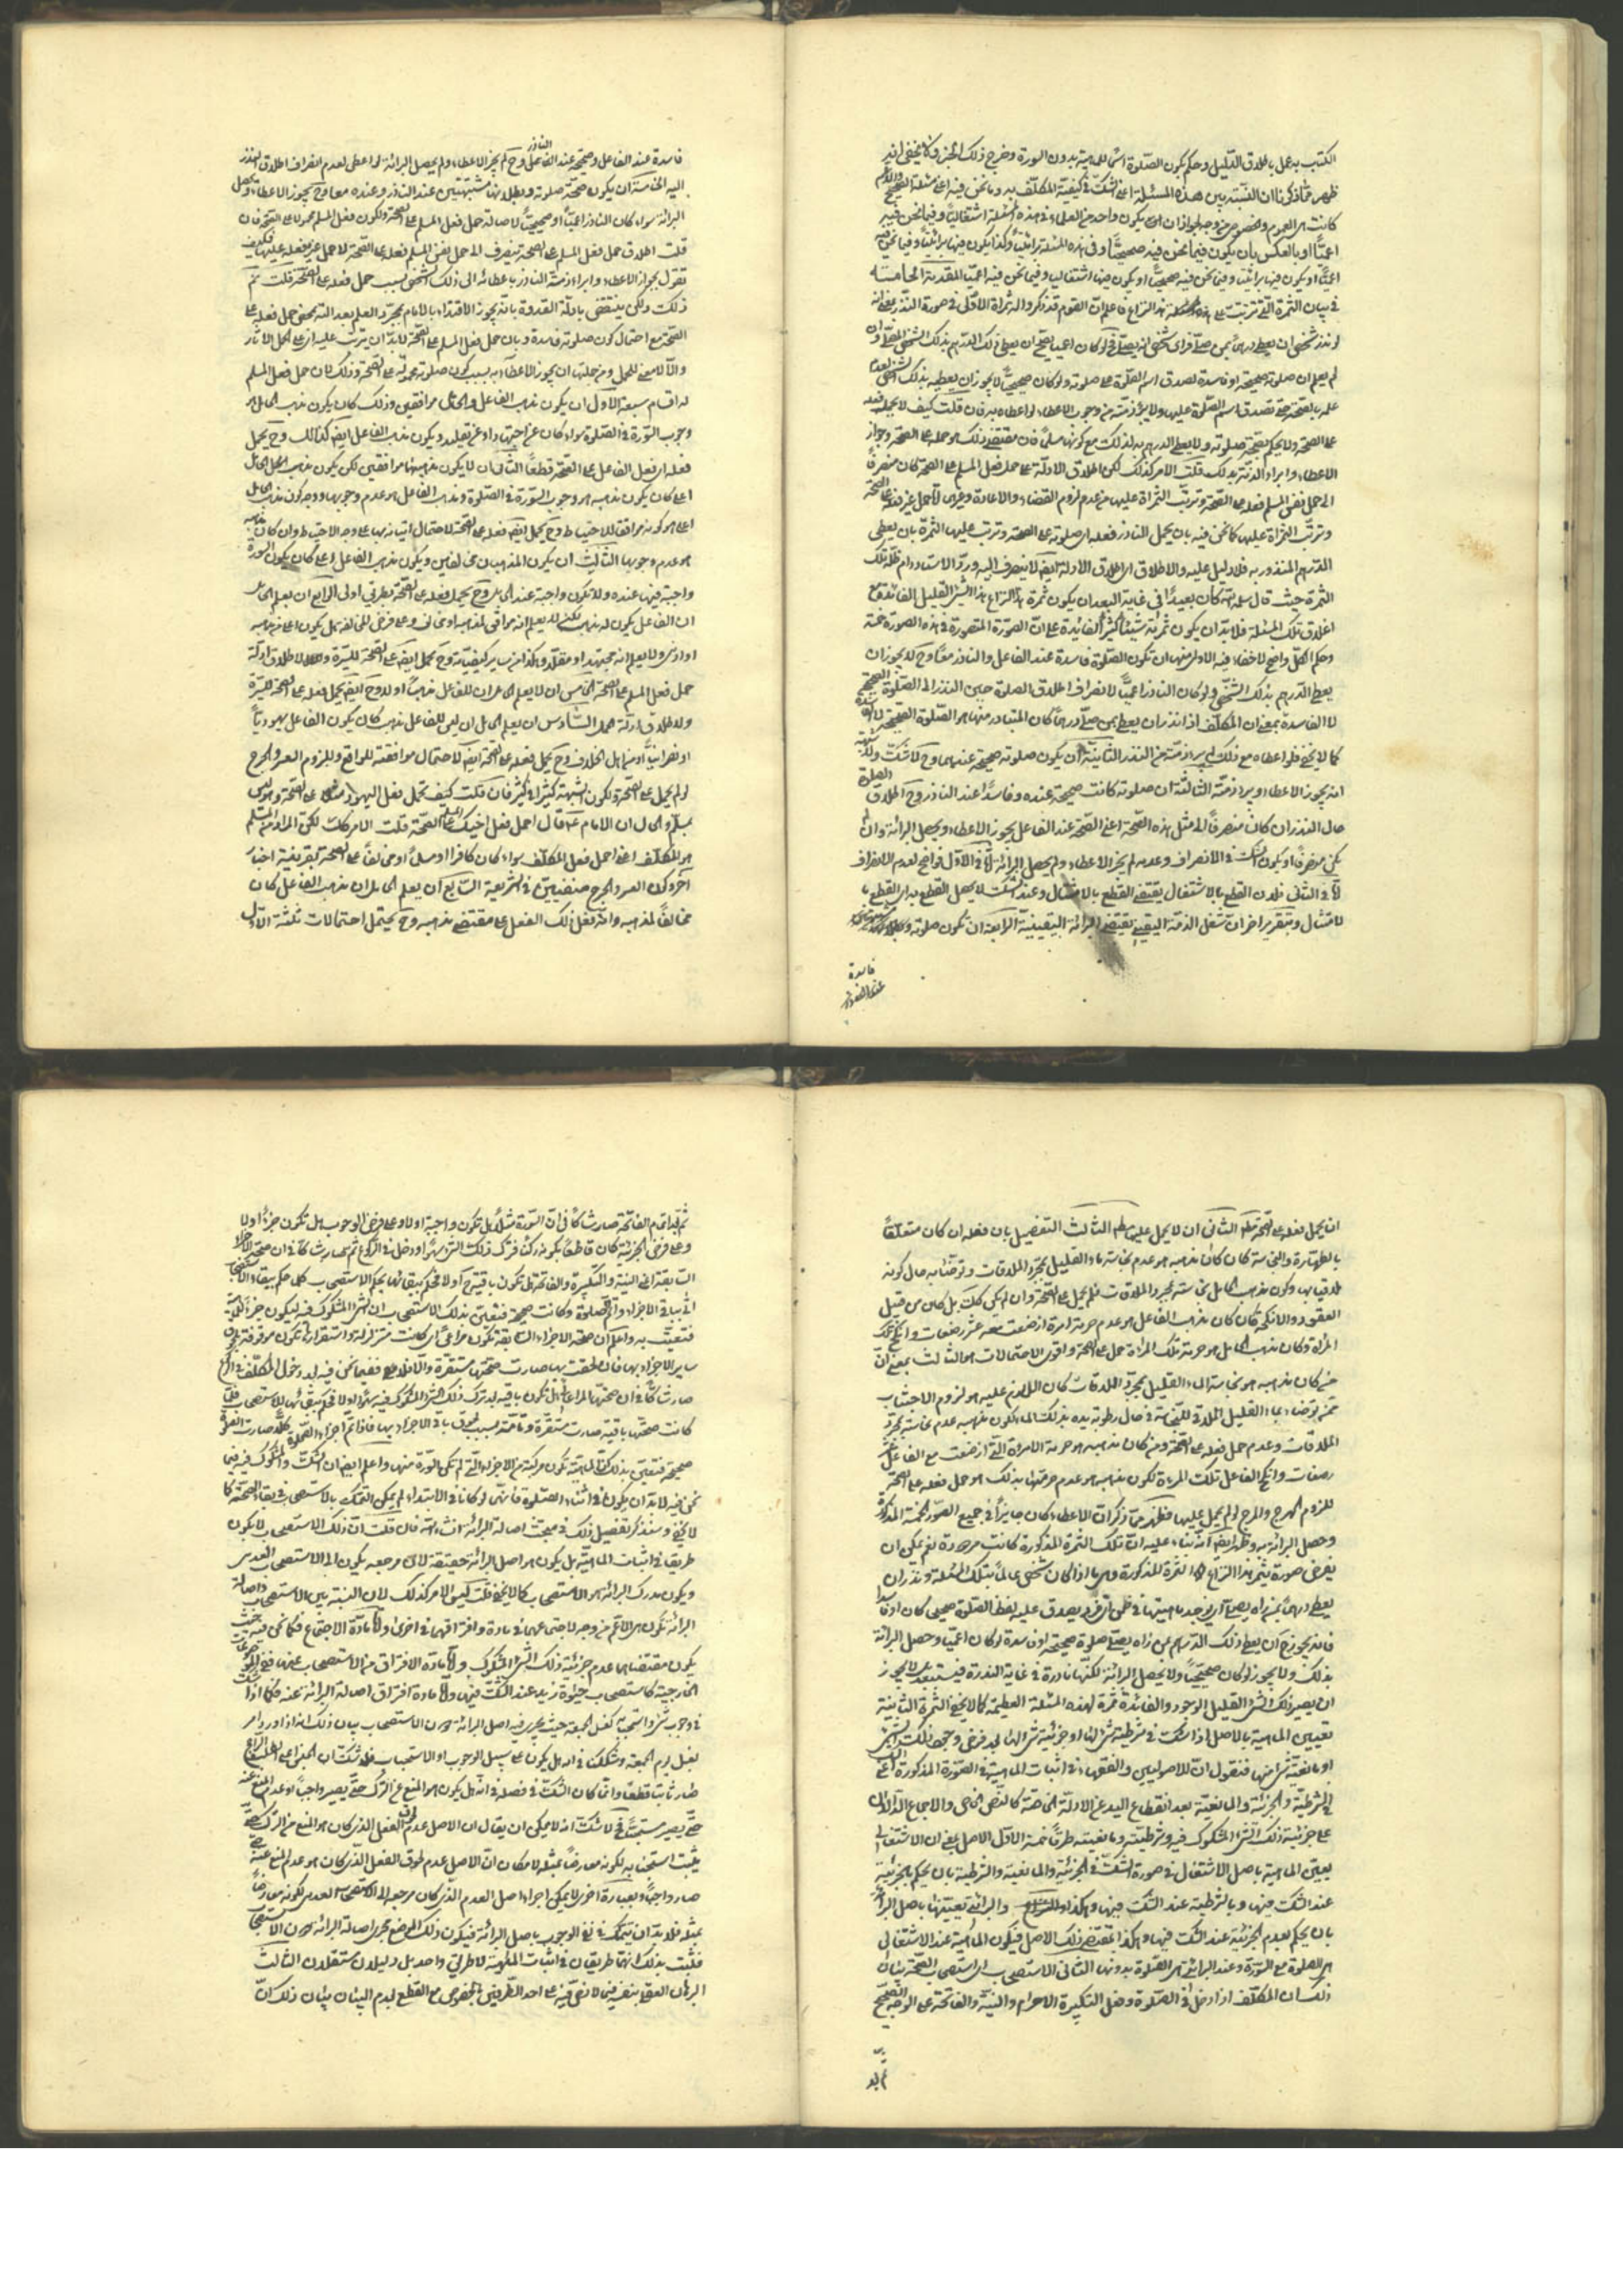 الكتب به عمل باطلاق الدليل وحكم بكون الصلوة اسما للماهية بدون السورة وخرج ذلك الجزء وكما لا يخفى انه قد
ظهر مما ذكرنا ان النسبة بين هذه المسئلة اعنى الشك في كيفية المكلف به وما نحن فيه اعنى مسئلة الصحيح والاعم
كانت هى العموم والخصوص من وجه لجواز ان يكون واحد من العلماء في هذه المسئلة اشتغاليا وفيما نحن فيه
اعميا او بالعكس بان يكون فيما نحن فيه صحيحيا وفي هذه المسئلة برائتيا وكذا يكون فيها برائتيا وفيما نحن فيه
اعميا او يكون فيها برائتيا وفيما نحن فيه صحيحيا او يكون فيها اشتغاليا وفيما نحن فيه اعميا المقدمة الخامسة
في بيان الثمرة التي تترتب على هذه المسئلة هذا النزاع فاعلم ان القوم قد ذكروا له ثمراة الاولى في صورة النذر بمعنى انه
لو نذر شخص ان يعطى درهما بمن صلى فراى شخصا انه يصلى فح لو كان اعميا يصح ان يعطى ذلك الدرهم بذلك الشخص المصلى وان
لم يعلم ان صلوته صحيحة او فاسدة لصدق اسم الصلوة على صلوته ولو كان صحيحيا لا يجوز ان يعطيه بذلك الشخص لعدم
علمه بالصحة حتى تصدق اسم الصلوة عليها ولا يبرء ذمته من وجوب الاعطاء لو اعطاه به فان قلت كيف لا يحمل فعله
على الصحة ولا يحكم بصحة صلوته ولا يعطى الدرهم به لذلك مع كونه مسلما فان مقتضى ذلك هو حمله على الصحة وجواز
الاعطاء وابراء الذمة بذلك قلت الامر كذلك لكن اطلاق الادلة على حمل فعل المسلم على الصحة كان منصرفا
الى حمل نفس المسلم فعله على الصحة وترتب الثمراة عليها من عدم لزوم القضاء والاعادة وغيرهما لا حمل غيره فعله على الصحة
وترتب الثمراة عليها كما نحن فيه بان يحمل الناذر فعله اى صلوته على الصحة وترتب عليها الثمرة بان يعطى
الدرهم المنذور به فلا دليل عليه والاطلاق اى اطلاق الادلة ايضا لا ينصرف اليه ورد الاستاد دام ظله تلك
الثمرة حيث قال سلمه الله كان بعيدا في غاية البعد ان يكون ثمرة هذا النزاع هذا الشئ القليل الفائدة مع
اغلاق تلك المسئلة فلا بد ان يكون ثمرته شيئا كثير الفائدة على ان الصورة المتصورة في هذه الصورة خمسة
وحكم الكل واضح لا خفاء فيه الاولى منها ان تكون الصلوة فاسدة عند الفاعل والناذر معا وح لا يجوز ان
يعطى الدرهم بذلك الشخص ولو كان الناذر اعميا لانصراف اطلاق الصلوة حين النذر الى الصلوة الصحيحة
لا الفاسدة بمعنى ان المكلف اذا نذر ان يعطى بمن صلى درهما كان المتبادر منها هو الصلوة الصحيحة لا الفاسدة
كما لا يخفى فلو اعطاه مع ذلك لم يبرء ذمته من النذر الثانية ان يكون صلوته صحيحة عندهما وح لا شك ولا شبهة
انه يجوز الاعطاء ويبرء ذمته الثالثة ان صلوته كانت صحيحة عنده وفاسدا عند الناذر وح اطلاق الصلوة
حال النذر ان كان منصرفا الى مثل هذه الصحة اعنى الصحة عند الفاعل يجوز الاعطاء ويحصل البرائة وان لم
يكن منصرفا او يكون الشك في الانصراف وعدمه لم يجز الاعطاء ولم يحصل البرائة اما في الاول فواضح لعدم الانصراف
اما في الثاني فلان القطع بالاشتغال يقتضى القطع بالامتثال وعند الشك لا يحصل القطع به اى القطع با
لامتثال وبتقرير اخر ان شغل الذمة اليقينى يقتضى البرائة اليقينية الرابعة ان تكون صلوته
فاسدة
عند الفاعل
فاسدة عند الفاعل وصحيحة عند الناذر وح لم يجز الاعطاء ولم يحصل البرائة لو اعطى لعدم انصراف اطلاق النذر
اليه الخامسة ان يكون صحة صلوته وبطلانها مشتبهتين عند الناذر وعنده معا وح يجوز الاعطاء ويحصل
البرائة سواء كان الناذر اعميا او صحيحيا لاصالة حمل فعل المسلم على الصحة ولكون فعل المسلم محمولا على الصحة فان
قلت اطلاق حمل فعل المسلم على الصحة ينصرف الى حمل نفس المسلم فعله على الصحة لا حمل غيره فعله عليها فكيف
تقول بجواز الاعطاء وابراء ذمة الناذر باعطائه الى ذلك الشخص بسبب حمل فعله على الصحة قلت نعم
ذلك ولكن ينتقض بادلة القدوة بانه يجوز الاقتداء بالامام بمجرد العلم بعدالته بمحض حمل فعله على
الصحة مع احتمال كون صلوته فاسدة وبان حمل فعل المسلم على الصحة لا بد ان يترتب عليه اثر على الحمل الاثار
والا لا معنى للحمل ومن جملتها ان يجوز الاعطاء به بسبب كون صلوته محمولة على الصحة وذلك لان حمل فعل المسلم
له اقسام سبعة الاول ان يكون مذهب الفاعل والحامل موافقين وذلك كان يكون مذهب الحامل هو
وجوب السورة في الصلوة سواء كان عن اجتهاد او عن تقليد ويكون مذهب الفاعل ايضا كذلك وح يحمل
فعله اى فعل الفاعل على الصحة قطعا الثانى ان لا يكون مذهبهما موافقين لكن يكون مذهب الحامل
اعلى كان يكون مذهبه هو وجوب السورة في الصلوة ومذهب الفاعل هو عدم وجوبها ووجه كون مذهب الحامل
اعلى هو كونه موافقا للاحتياط وح يحمل ايضا فعله على الصحة لاحتمال اتيانه بها على وجه الاحتياط وان كان مذهبه
هو عدم وجوبها الثالث ان يكون المذهبان مخالفين ويكون مذهب الفاعل اعلى كان يكون السورة
واجبة فيها عنده ولا تكون واجبة عند الحامل وح يحمل فعله على الصحة بطريق اولى الرابع ان يعلم الحامل
ان الفاعل يكون له مذهب لكنه لا يعلم انه موافق لمذهبه او مخالف وعلى فرض المخالفة هل يكون اعلى من مذهبه
او ادنى ولا يعلم انه مجتهد او مقلد وهكذا من سائر كيفياته وح يحمل ايضا على الصحة للسيرة ولاطلاق ادلة
حمل فعل المسلم على الصحة الخامس ان لا يعلم الحامل ان للفاعل مذهبا او لا وح ايضا يحمل فعله على الصحة للسيرة
ولاطلاق ادلة الحمل السادس ان يعلم الحامل ان ليس للفاعل مذهب كان يكون الفاعل يهوديا
او نصرانيا او من اهل الخلاف وح يحمل فعله على الصحة ايضا لاحتمال موافقته للواقع وللزوم العسر والحرج
لو لم يحمل على الصحة ولكون الشبهة كثيرا في كثير فان قلت كيف تحمل فعل اليهود مثلا على الصحة وهو ليس
بمسلم والحال ان الامام ع قال احمل فعل اخيك المسلم على الصحة قلت الامر كذلك لكن المراد من المسلم
هو المكلف اعنى احمل فعل المكلف سواء كان كافرا او مسلما او مخالفا على الصحة بقرينة اخبار
اخر وكون العسر والحرج منفيين في الشريعة السابع ان يعلم الحامل ان مذهب الفاعل كان
مخالفا لمذهبه وانه يفعل ذلك الفعل على مقتضى مذهبه وح يحتمل احتمالات ثلثة الاول
ان يحمل فعله على الصحة مطلقا الثانى ان لا يحمل عليها مطلقا الثالث التفصيل بان فعله ان كان متعلقا
بالطهارة والنجاسة كان كان مذهبه هو عدم نجاسة ماء القليل بمجرد الملاقات وتوضأ به حال كونه
ملاقيا بها وكون مذهب الحامل نجاسته بمجرد الملاقات فلم يحمل على الصحة وان لم يكن كذلك بل كان من قبيل
العقود والانكحة كان كان مذهب الفاعل هو عدم حرمة امرءة ارضعت معه عشر رضعات وانكح تلك
المرأة وكان مذهب الحامل هو حرمة تلك المراة حمل على الصحة واقوى الاحتمالات هو الثالث بمعنى ان
من كان مذهبه هو نجاسة الماء القليل بمجرد الملاقات كان اللازم عليه هو لزوم الاجتناب
عمن توضأ بماء القليل الملاقى للنجاسة في حال رطوبة يده بذلك الماء لكون مذهبه عدم نجاسته بمجرد
الملاقات وعدم حمل فعله على الصحة ومن كان مذهبه هو حرمة الامراة التي ارضعت مع الفاعل عشر
رضعات وانكح الفاعل تلك المرأة لكون مذهبه هو عدم حرمتها بذلك هو حمل فعله على الصحة
للزوم الهرج والمرج لو لم يحمل عليها فظهر مما ذكر ان الاعطاء كان جايزا في جميع الصور الخمسة المذكورة
وحصل البرائة به وظهر ايضا انه بناء عليه ان تلك الثمرة المذكورة كانت مردودة نعم يمكن ان
يفرض صورة يثمر هذا النزاع هذا الثمرة المذكورة وهى ما اذا كان شخص عالما بتلك المسئلة ونذر ان
يعطى درهما بمن راه يصلى اى يوجد ماهيتها في ضمن اى فرد يصدق عليه لفظ الصلوة صحيحى كان او فاسدا
فانه يجوز ح ان يعطى ذلك الدرهم بمن راه يصلى صلوة صحيحة او فاسدة لو كان اعميا وحصل البرائة
بذلك ولا يجوز لو كان صحيحيا ولا يحصل البرائة لكنها نادرة في غاية الندرة فيستبعد بل لا يجوز
ان يصير ذلك الشئ القليل الوجود والفائدة ثمرة لهذه المسئلة العظيمة كما لا يخفى الثمرة الثانية
تعيين الماهية بالاصل اذا شك في شرطية شئ لها او جزئية شئ لها بعد فرض وجوب ذلك الشئ
او مانعية شئ منها فنقول ان للاصوليين والفقهاء في اثبات الماهية في الصورة المذكورة اعنى الشك
في الشرطية والجزئية والمانعية بعد انقطاع اليد عن الادلة الخاصة كالنص الخاص والاجماع الدالان
على جزئية ذلك الشئ المشكوك فيه وشرطيته ومانعيته طرقا خمسة الاول الاصل بمعنى ان الاشتغالى
يعين الماهية باصل الاشتغال في صورة الشك في الجزئية والمانعية والشرطية بان يحكم بالجزئية
عند الشك فيها وبالشرطية عند الشك فيها وهكذا والبرائتى تعيينها باصل البرائة
بان يحكم بعدم الجزئية عند الشك فيها وهكذا بمقتضى ذلك الاصل فيكون الماهية عند الاشتغالى
هى الصلوة مع السورة وعند البرائتى هى الصلوة بدونها الثانى الاستصحاب اى استصحاب الصحة بيان
ذلك ان المكلف اذا دخل في الصلوة وفعل التكبيرة الاحرام والنية والفاتحة على الوجه الصحيح
ثم بعد
ثم بعد اتمام الفاتحة صار شاكا في ان السورة مثلا هل تكون واجبة اولا وعلى فرض الوجوب هل تكون جزءا او لا
وعلى فرض الجزئية كان قاطعا بكونه ركنا فترك ذلك الشئ سهوا ودخل في الركوع ثم صار شاكا في ان صحة الاجزاء
السابقة اعنى النية والتكبيرة والفاتحة هل تكون باقية ح او لا فحكم ببقائها بحكم الاستصحاب كل حكم ببقاء الاستصحاب
اتى بباقى الاجزاء واتم الصلوة وكانت صحيحة فتعين بذلك الاستصحاب ان الشئ المشكوك فيه لم يكون جزءا للماهية
فتعينت به واعلم ان صحة الاجزاء السابقة تكون مراعى اى كانت متزلزلة واستقرارها تكون موقوفة بلحوق
ساير الاجزاء بها فان لحقت بها صارت صحتها مستقرة والا فلا ففيما نحن فيه بعد دخول المكلف في الركوع
صار شاكا في ان صحتها المراعاة هل تكون باقية بعد ترك ذلك الشئ المشكوك فيه سهوا او لا فحكم ببقائها للاستصحاب فلما
كانت صحتها باقية صارت مستقرة وتامة بسبب لحوق باقى الاجزاء بها فاذا تم اجزاء الصلوة كلها صارت الصلوة
صحيحة فتعين بذلك ان الماهية تكون مركبة من الاجزاء التي لم تكن السورة منها واعلم ايضا ان الشك والمشكوك فيه فيما
نحن فيه لا بد ان يكون في اثناء الصلوة فانهما لو كانا في الابتداء لم يمكن التمسك بالاستصحاب في بقاء الصحة كما
لا يخفى وسنذكر تفصيل ذلك في مبحث اصالة البرائة انشاء الله فان قلت ان ذلك الاستصحاب لا يكون
طريقا في اثبات الماهية بل يكون هو اصل البرائة حقيقة لان مرجعه يكون الى الاستصحاب العدمى
ويكون مدرك البرائة هو الاستصحاب كما لا يخفى قلت ليس الامر كذلك لان النسبة بين الاستصحاب واصالة
البرائة تكون هى الاعم من وجه لاجتماعهما في مادة وافتراقهما في اخرى اما مادة الاجتماع فكما نحن فيه حيث
يكون مقتضاهما عدم جزئية ذلك الشئ المشكوك واما مادة الافتراق من الاستصحاب عنها ففى الموضوعات
الخارجية كاستصحاب حيوة زيد عند الشك فيها واما مادة افتراق اصالة البرائة عنه فكما اذا شك
في وجوب شئ واستحبابه كغسل الجمعة حيث يجرى فيه اصل البرائة دون الاستصحاب بيان ذلك انه اذا ورد امر
بغسل يوم الجمعة وشككنا في انه هل يكون على سبيل الوجوب او الاستحباب فلا شك ان الجنس اعنى الطلب الراجح
صار ثابتا قطعا وانما كان الشك في فصله في انه هل يكون هو المنع عن الترك حتى يصير واجبا او عدم المنع عنه
حتى يصير مستحبا فح لا شك انه لا يمكن ان يقال ان الاصل عدم لحوق الفصل الذى كان هو المنع من الترك حتى
يثبت استحبابه لكونه معارضا بمثله لامكان ان الاصل عدم لحوق الفصل الذى كان هو عدم المنع عنه حتى
صار واجبا وبعبارة اخرى لا يمكن اجراء اصل العدم الذى كان مرجعه الى الاستصحاب العدمى لكونه معارضا
بمثله فلا بد ان نتمسك في نفى الوجوب باصل البرائة فيكون ذلك الموضع مجرى اصالة البرائة دون الاستصحاب
فثبت بذلك انهما طريقان في اثبات الماهية لا طريق واحد بل دليلان مستقلان الثالث
البرهان العقلى بنفى فيما لا نص فيه على احد الطرفين بالخصوص مع القطع بعدم البيان بيان ذلك ان